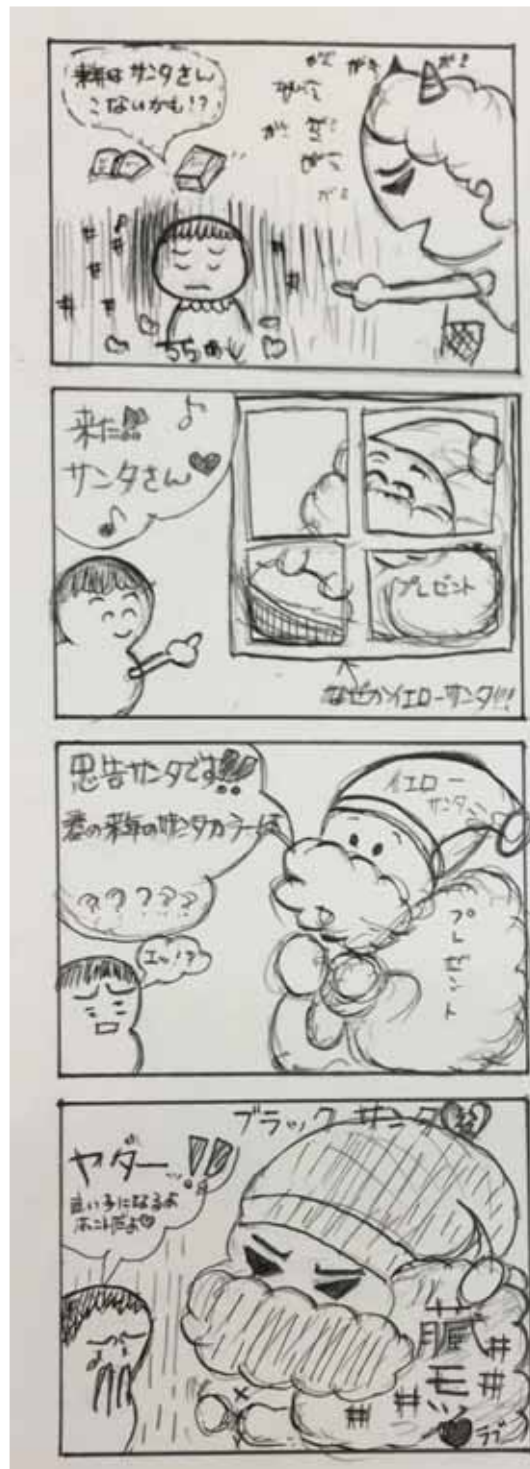 来年はサンタさん
こないかも!?
ガミ ガミ ガミ
ガミ
ガミ
ガミ
来た!!!
サンタさん♥
♪
プレゼント
なぜかイエローサンタ!!!
忠告サンタです!!
君の来年のサンタカラーは
?????
イエロー
サンタ
プレゼント
エッ!?
ブラックサンタ
ヤダー!!
良い子になるよ
ホントだよ♡
臓モツ
ラブ